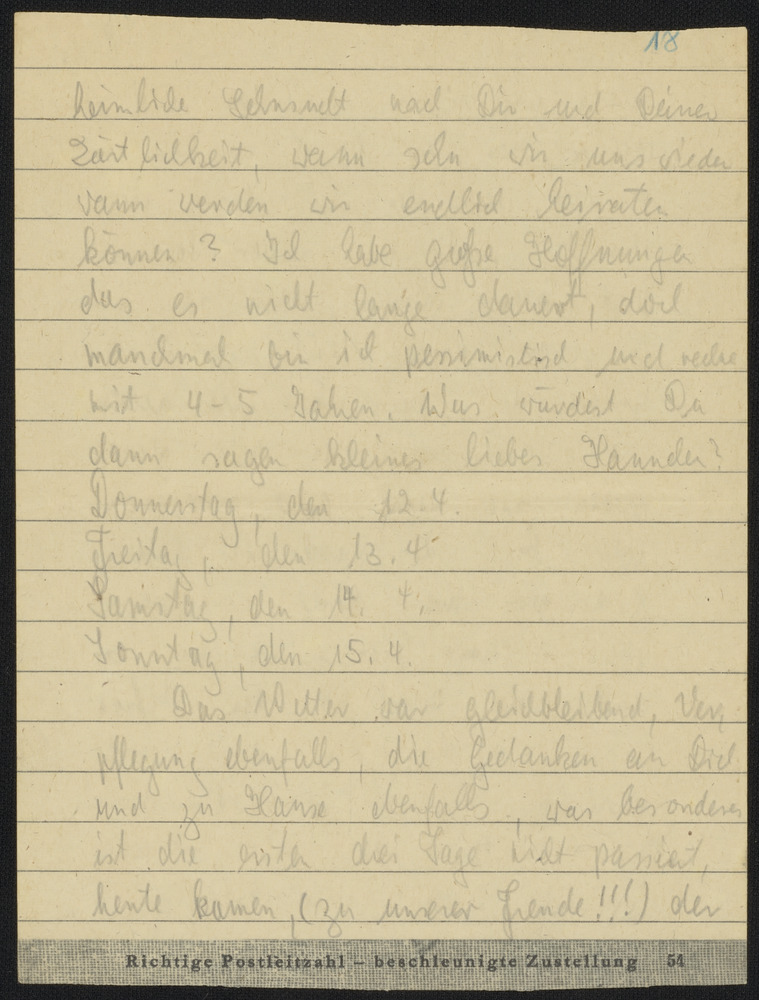 18
heimliche Sehnsucht nach Dir und Deiner
Zärtlichkeit, wann sehn wir uns wieder
wann werden wir endlich heiraten
können? Ich habe große Hoffnungen
das es nicht lange dauert, doch
manchmal bin ich pessimistisch und rechne
mit 4-5 Jahren. Was würdest Du
dann sagen kleines liebes Hannchen?
Donnerstag, den 12.4.
Freitag, den 13.4.
Samstag, den 14. 4.
Sonntag, den 15.4.
Das Wetter war gleichbleibend, Ver-
pflegung ebenfalls, die Gedanken an Dich
und zu Hause ebenfalls, was besonderes
ist die ersten drei Tage nicht passiert,
heute kamen, (zu unserer Freude!!!) der
Richtige Postleitzahl – beschleunigte Zustellung 54